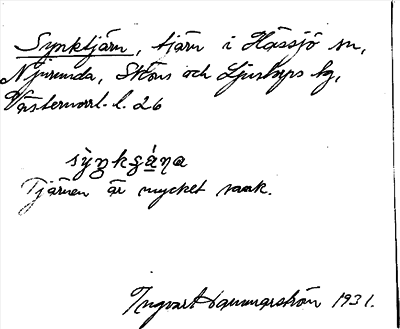 Synktjärn, tjärn i Hässjö sn,
Njurunda, Sköns och Ljustorps tg,
Västernorrl. l. 26
Tjärnen är mycket vank.
Ingvar Hammarström 1931.